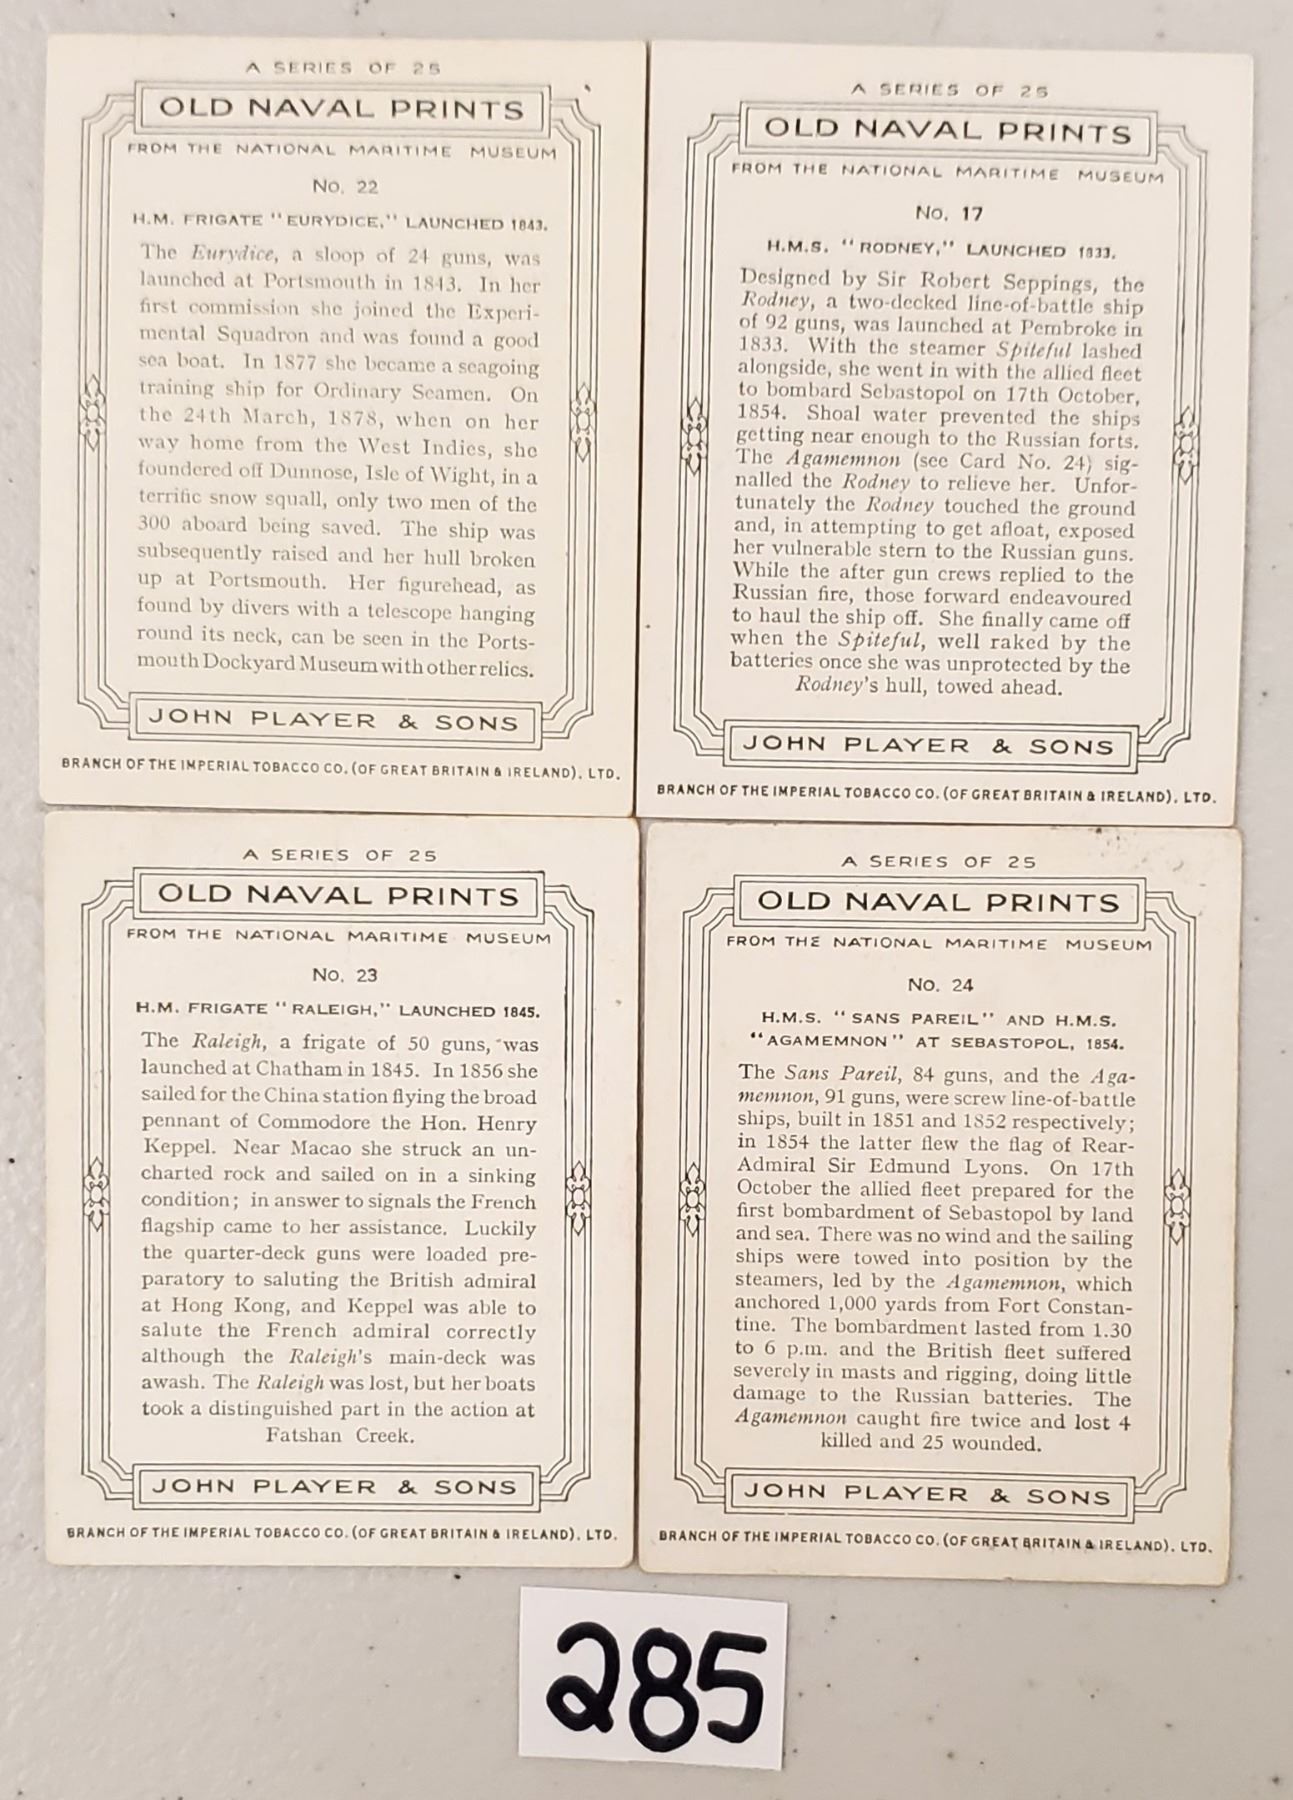 A SERIES OF 25
OLD NAVAL PRINTS
FROM THE NATIONAL MARITIME MUSEUM
No. 22
H.M. FRIGATE "EURYDICE," LAUNCHED 1843.
The Eurydice, a sloop of 24 guns, was
launched at Portsmouth in 1843. In her
first commission she joined the Experi-
mental Squadron and was found a good
sea boat. In 1877 she became a seagoing
training ship for Ordinary Seamen. On
the 24th March, 1878, when on her
way home from the West Indies, she
foundered off Dunnose, Isle of Wight, in a
terrific snow squall, only two men of the
300 aboard being saved. The ship was
subsequently raised and her hull broken
up at Portsmouth. Her figurehead, as
found by divers with a telescope hanging
round its neck, can be seen in the Ports-
mouth Dockyard Museum with other relics.
JOHN PLAYER & SONS
BRANCH OF THE IMPERIAL TOBACCO CO. (OF GREAT BRITAIN & IRELAND), LTD.
A SERIES OF 25
OLD NAVAL PRINTS
FROM THE NATIONAL MARITIME MUSEUM
No. 17
H.M.S. "RODNEY," LAUNCHED 1833.
Designed by Sir Robert Seppings, the
Rodney, a two-decked line-of-battle ship
of 92 guns, was launched at Pembroke in
1833. With the steamer Spiteful lashed
alongside, she went in with the allied fleet
to bombard Sebastopol on 17th October,
1854. Shoal water prevented the ships
getting near enough to the Russian forts.
The Agamemnon (see Card No. 24) sig-
nalled the Rodney to relieve her. Unfor-
tunately the Rodney touched the ground
and, in attempting to get afloat, exposed
her vulnerable stern to the Russian guns.
While the after gun crews replied to the
Russian fire, those forward endeavoured
to haul the ship off. She finally came off
when the Spiteful, well raked by the
batteries once she was unprotected by the
Rodney's hull, towed ahead.
JOHN PLAYER & SONS
BRANCH OF THE IMPERIAL TOBACCO CO. (OF GREAT BRITAIN & IRELAND), LTD.
A SERIES OF 25
OLD NAVAL PRINTS
FROM THE NATIONAL MARITIME MUSEUM
No. 23
H.M. FRIGATE "RALEIGH," LAUNCHED 1845.
The Raleigh, a frigate of 50 guns, was
launched at Chatham in 1845. In 1856 she
sailed for the China station flying the broad
pennant of Commodore the Hon. Henry
Keppel. Near Macao she struck an un-
charted rock and sailed on in a sinking
condition; in answer to signals the French
flagship came to her assistance. Luckily
the quarter-deck guns were loaded pre-
paratory to saluting the British admiral
at Hong Kong, and Keppel was able to
salute the French admiral correctly
although the Raleigh's main-deck was
awash. The Raleigh was lost, but her boats
took a distinguished part in the action at
Fatshan Creek.
JOHN PLAYER & SONS
BRANCH OF THE IMPERIAL TOBACCO CO. (OF GREAT BRITAIN & IRELAND), LTD.
A SERIES OF 25
OLD NAVAL PRINTS
FROM THE NATIONAL MARITIME MUSEUM
No. 24
H.M.S. "SANS PAREIL" AND H.M.S.
"AGAMEMNON" AT SEBASTOPOL, 1854.
The Sans Pareil, 84 guns, and the Aga-
memnon, 91 guns, were screw line-of-battle
ships, built in 1851 and 1852 respectively;
in 1854 the latter flew the flag of Rear-
Admiral Sir Edmund Lyons. On 17th
October the allied fleet prepared for the
first bombardment of Sebastopol by land
and sea. There was no wind and the sailing
ships were towed into position by the
steamers, led by the Agamemnon, which
anchored 1,000 yards from Fort Constan-
tine. The bombardment lasted from 1.30
to 6 p.m. and the British fleet suffered
severely in masts and rigging, doing little
damage to the Russian batteries. The
Agamemnon caught fire twice and lost 4
killed and 25 wounded.
JOHN PLAYER & SONS
BRANCH OF THE IMPERIAL TOBACCO CO. (OF GREAT BRITAIN & IRELAND), LTD.
285